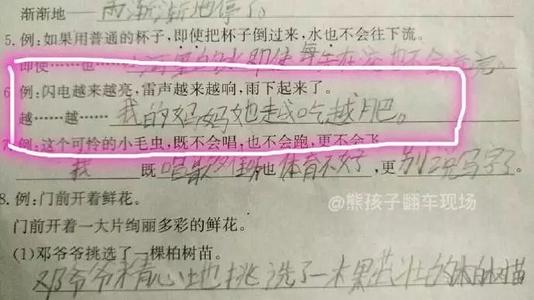 渐渐地——雨渐渐地停了。
5. 例:如果用普通的杯子,即使把杯子倒过来,水也不会往下流。
即使……也……
6. 例:闪电越来越亮,雷声越来越响,雨下起来了。
越……越…… 我的妈妈她越吃越肥。
7. 例:这个可怜的小毛虫,既不会唱,也不会跑,更不会飞。
我 既唱歌 也体育不好,更别说写字了。
@熊孩子翻车现场
8. 例:门前开着鲜花。
门前开着一大片绚丽多彩的鲜花。
(1)邓爷爷挑选了一棵柏树苗。
邓爷爷精心地挑选了一棵茁壮的柏树苗